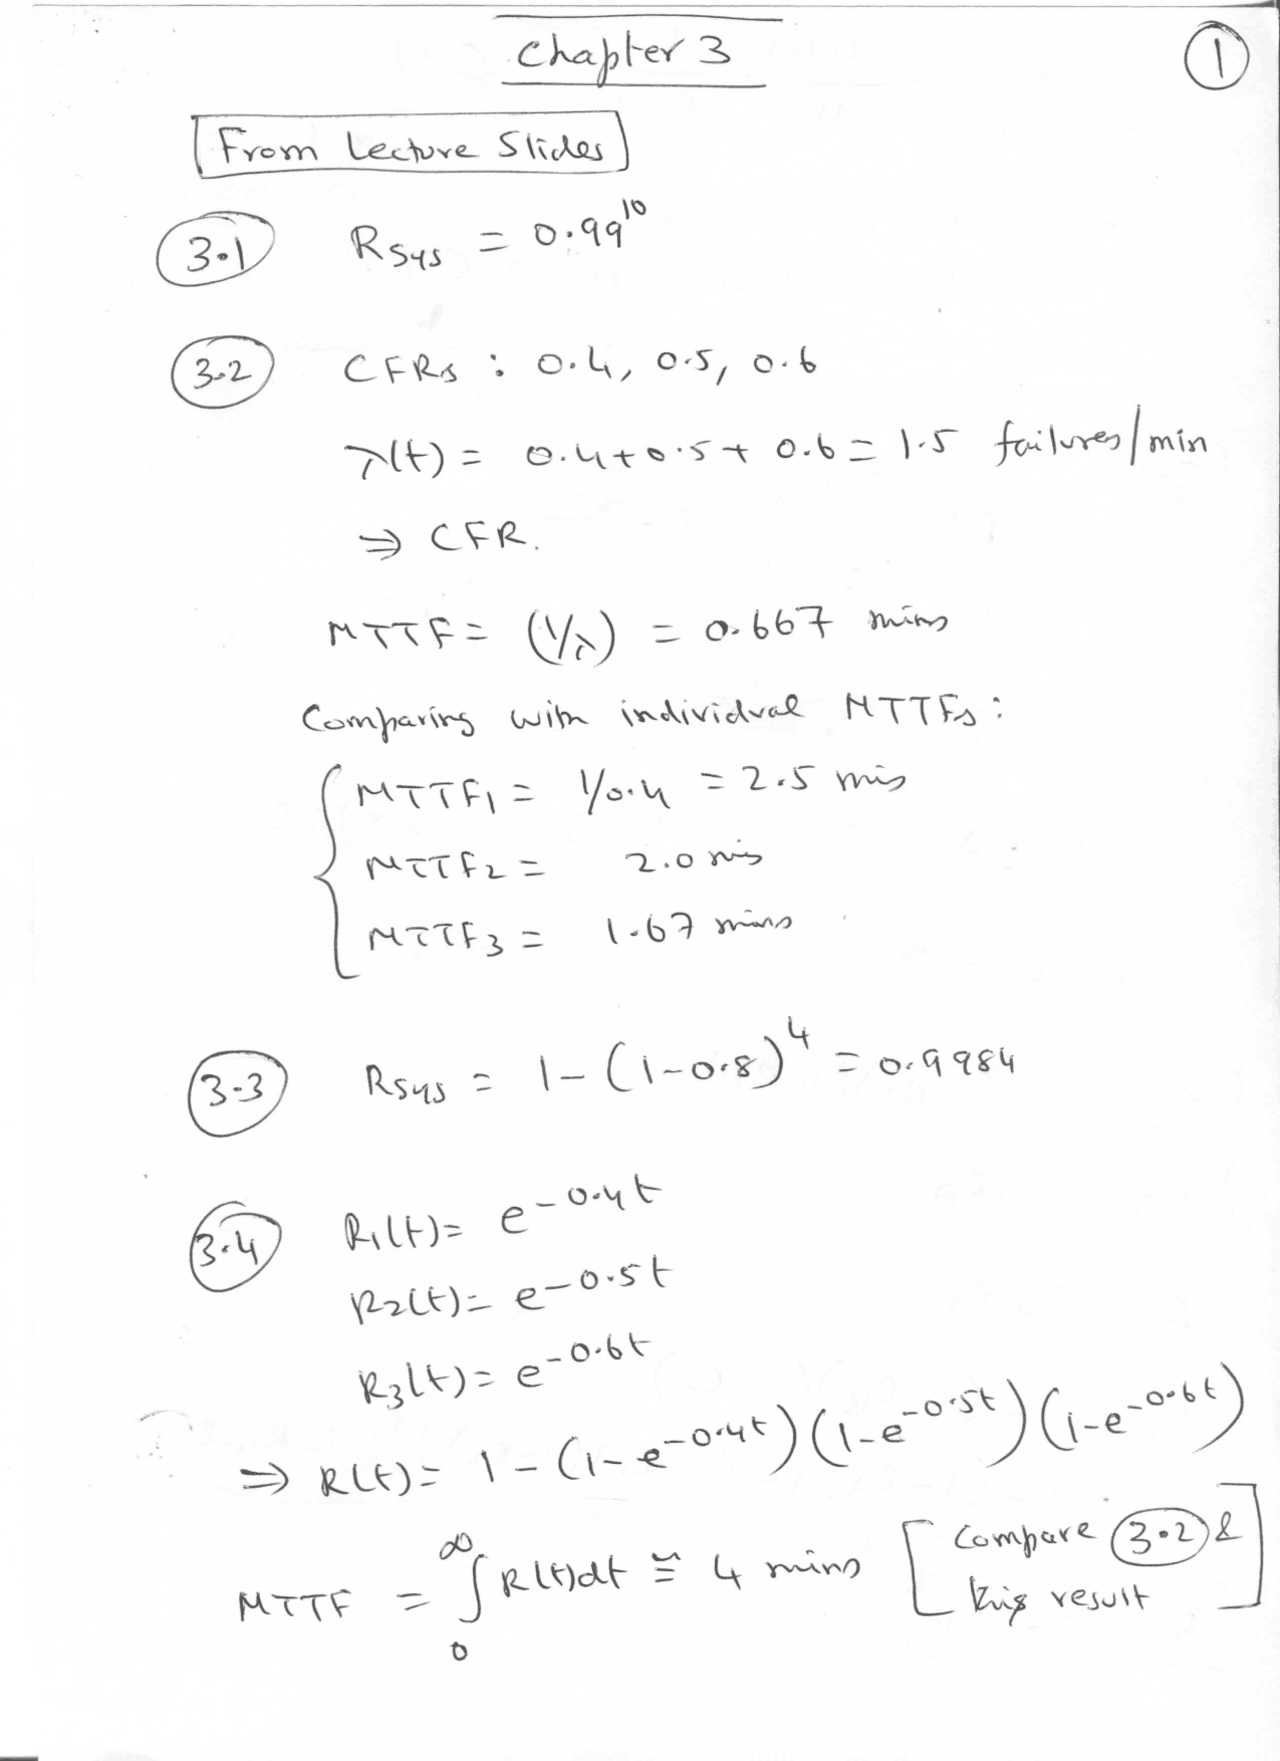 Chapter 3
1
From Lecture Slides
3.1 Rsys = 0.99^10
3.2 CFRs : 0.4, 0.5, 0.6
λ(t) = 0.4+0.5+0.6 = 1.5 failures/min
⇒ CFR.
MTTF = (1/λ) = 0.667 mins
Comparing with individual MTTFs :
MTTF1 = 1/0.4 = 2.5 mis
MTTF2 = 2.0 mis
MTTF3 = 1.67 mins
3.3 Rsys = 1-(1-0.8)^4 = 0.9984
3.4 R1(t) = e^-0.4t
R2(t) = e^-0.5t
R3(t) = e^-0.6t
⇒ R(t) = 1-(1-e^-0.4t)(1-e^-0.5t)(1-e^-0.6t)
MTTF = ∫₀^∞ R(t)dt ≅ 4 mins [Compare 3.2 &
this result]